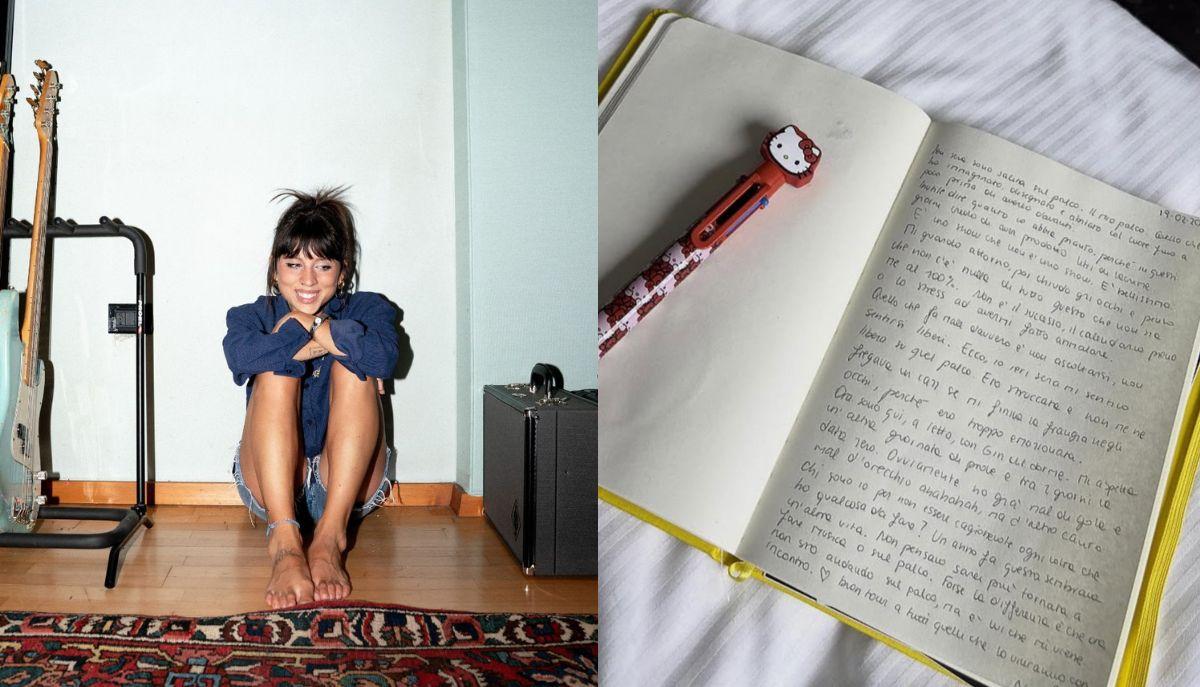 19-02-20
Ieri sera sono salita sul palco. Il mio palco. Quello che
ho immaginato, disegnato e abitato col cuore fino a
poco prima di averlo davanti.
Inutile dire quanto io abbia pianto, perché in questi
giorni credo di aver prodotto litri di lacrime.
E' uno show che non è uno show. E' bellissimo.
Mi guardo attorno, poi chiudo gli occhi e penso
che non c'è nulla di tutto questo che non sia
me al 100%. Non è il successo, il calendario pieno
o lo stress ad avermi fatto ammalare.
Quello che fa male davvero è non ascoltarsi, non
sentirsi liberi. Ecco, io ieri sera mi sentivo
libera su quel palco. Ero struccata e non me ne
fregava un cazz se mi finiva la frangia negli
occhi, perché ero troppo emozionata.
Ora sono qui, a letto, con Gin che dorme. Mi aspetta
un'altra giornata di prove e tra 2 giorni la
data zero. Ovviamente ho già mal di gola e
mal d'orecchio ahahahah, ma d'altro canto
chi sono io per non essere cagionevole ogni volta che
ho qualcosa da fare? Un anno fa questa sembrava
un'altra vita. Non pensavo sarei più tornata a
fare musica o sul palco. Forse la differenza è che ora
non sto andando sul palco, ma è lui che mi viene
incontro. ♡ buon tour a tutti quelli che lo vivranno con